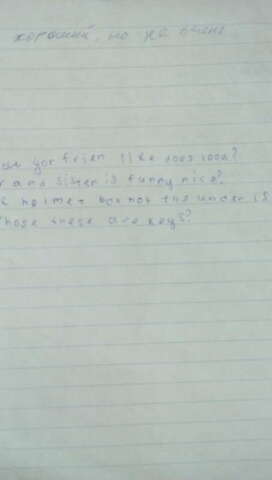 хороший, но не очень
yor frien like
and sister is funny nice?
helmet the under is
those these are keys?